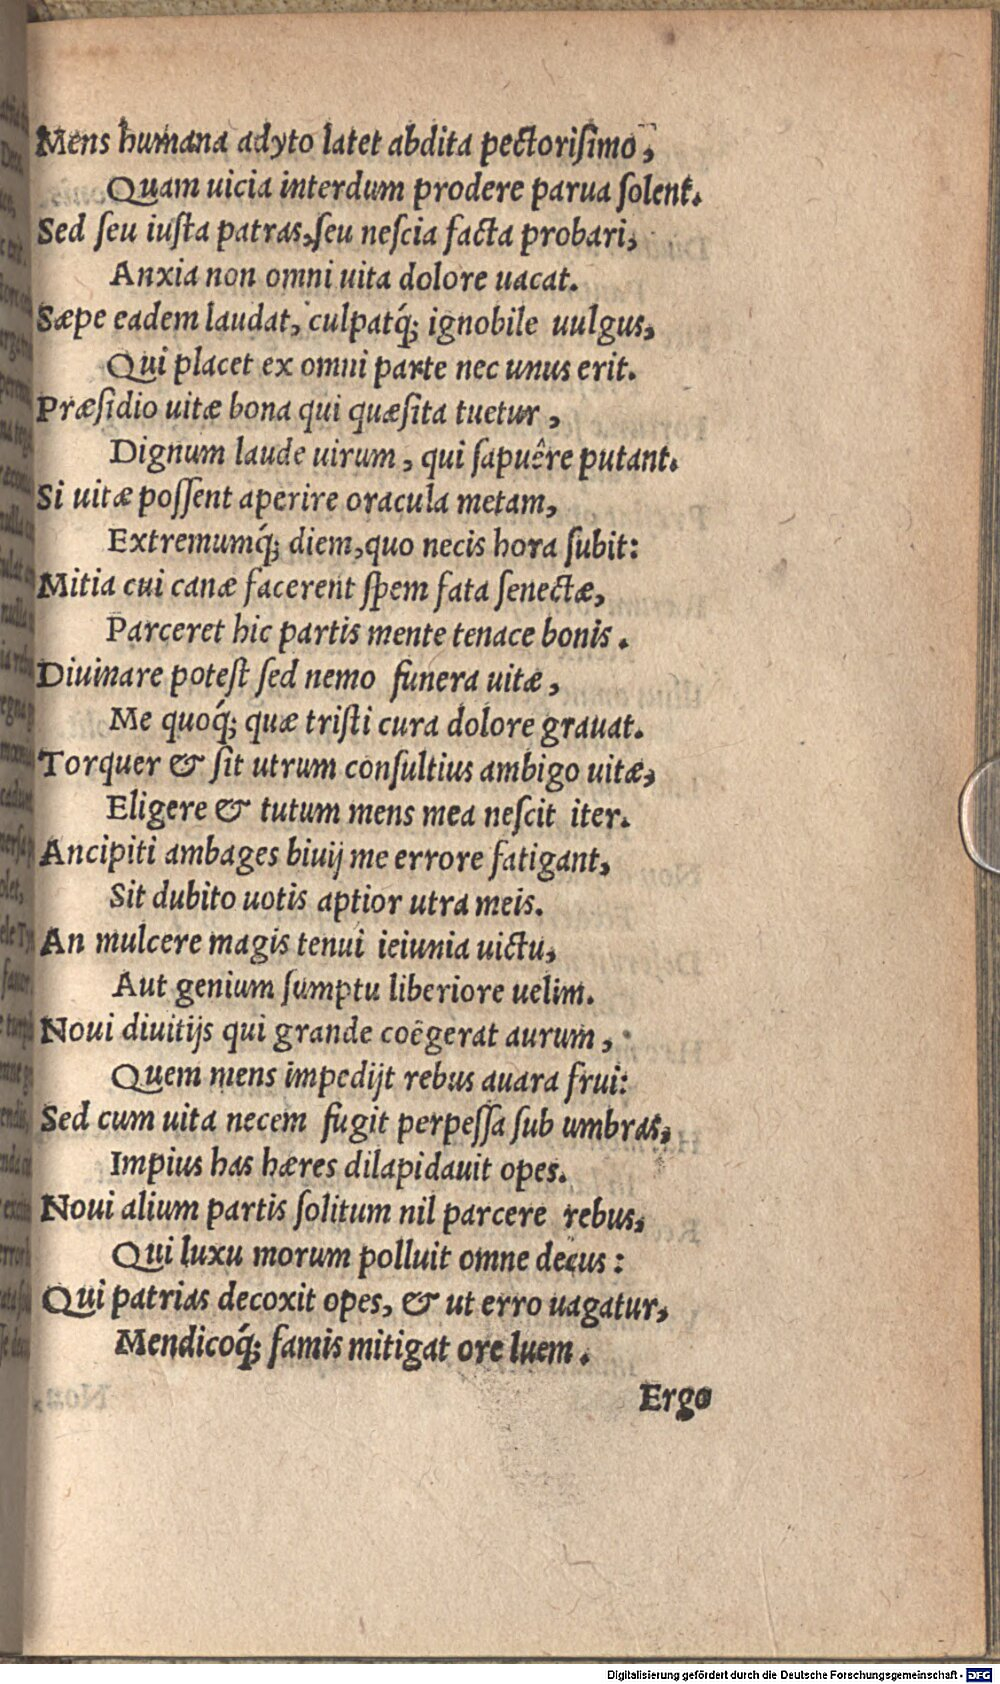 Mens humana adyto latet abdita pectorisimo,
Quam uicia interdum prodere parua solent.
Sed seu iusta patras, seu nescia facta probari,
Anxia non omni uita dolore uacat.
Sæpe eadem laudat, culpatq́; ignobile uulgus,
Qui placet ex omni parte nec unus erit.
Præsidio uitæ bona qui quæsita tuetur,
Dignum laude uirum, qui sapuêre putant.
Si uitæ possent aperire oracula metam,
Extremumq́; diem, quo necis hora subit:
Mitia cui canæ facerent spem fata senectæ,
Parceret hic partis mente tenace bonis.
Diuinare potest sed nemo funera uitæ,
Me quoq́; quæ tristi cura dolore grauat.
Torquer & sit utrum consultius ambigo uitæ,
Eligere & tutum mens mea nescit iter.
Ancipiti ambages biuij me errore fatigant,
Sit dubito uotis aptior utra meis.
An mulcere magis tenui ieiunia uictu,
Aut genium sumptu liberiore uelim.
Noui diuitijs qui grande coëgerat aurum,
Quem mens impedijt rebus auara frui:
Sed cum uita necem fugit perpessa sub umbras,
Impius has hæres dilapidauit opes.
Noui alium partis solitum nil parcere rebus,
Qui luxu morum polluit omne decus:
Qui patrias decoxit opes, & ut erro uagatur,
Mendicoq́; famis mitigat ore luem.
Ergo
Digitalisierung gefördert durch die Deutsche Forschungsgemeinschaft - DFG